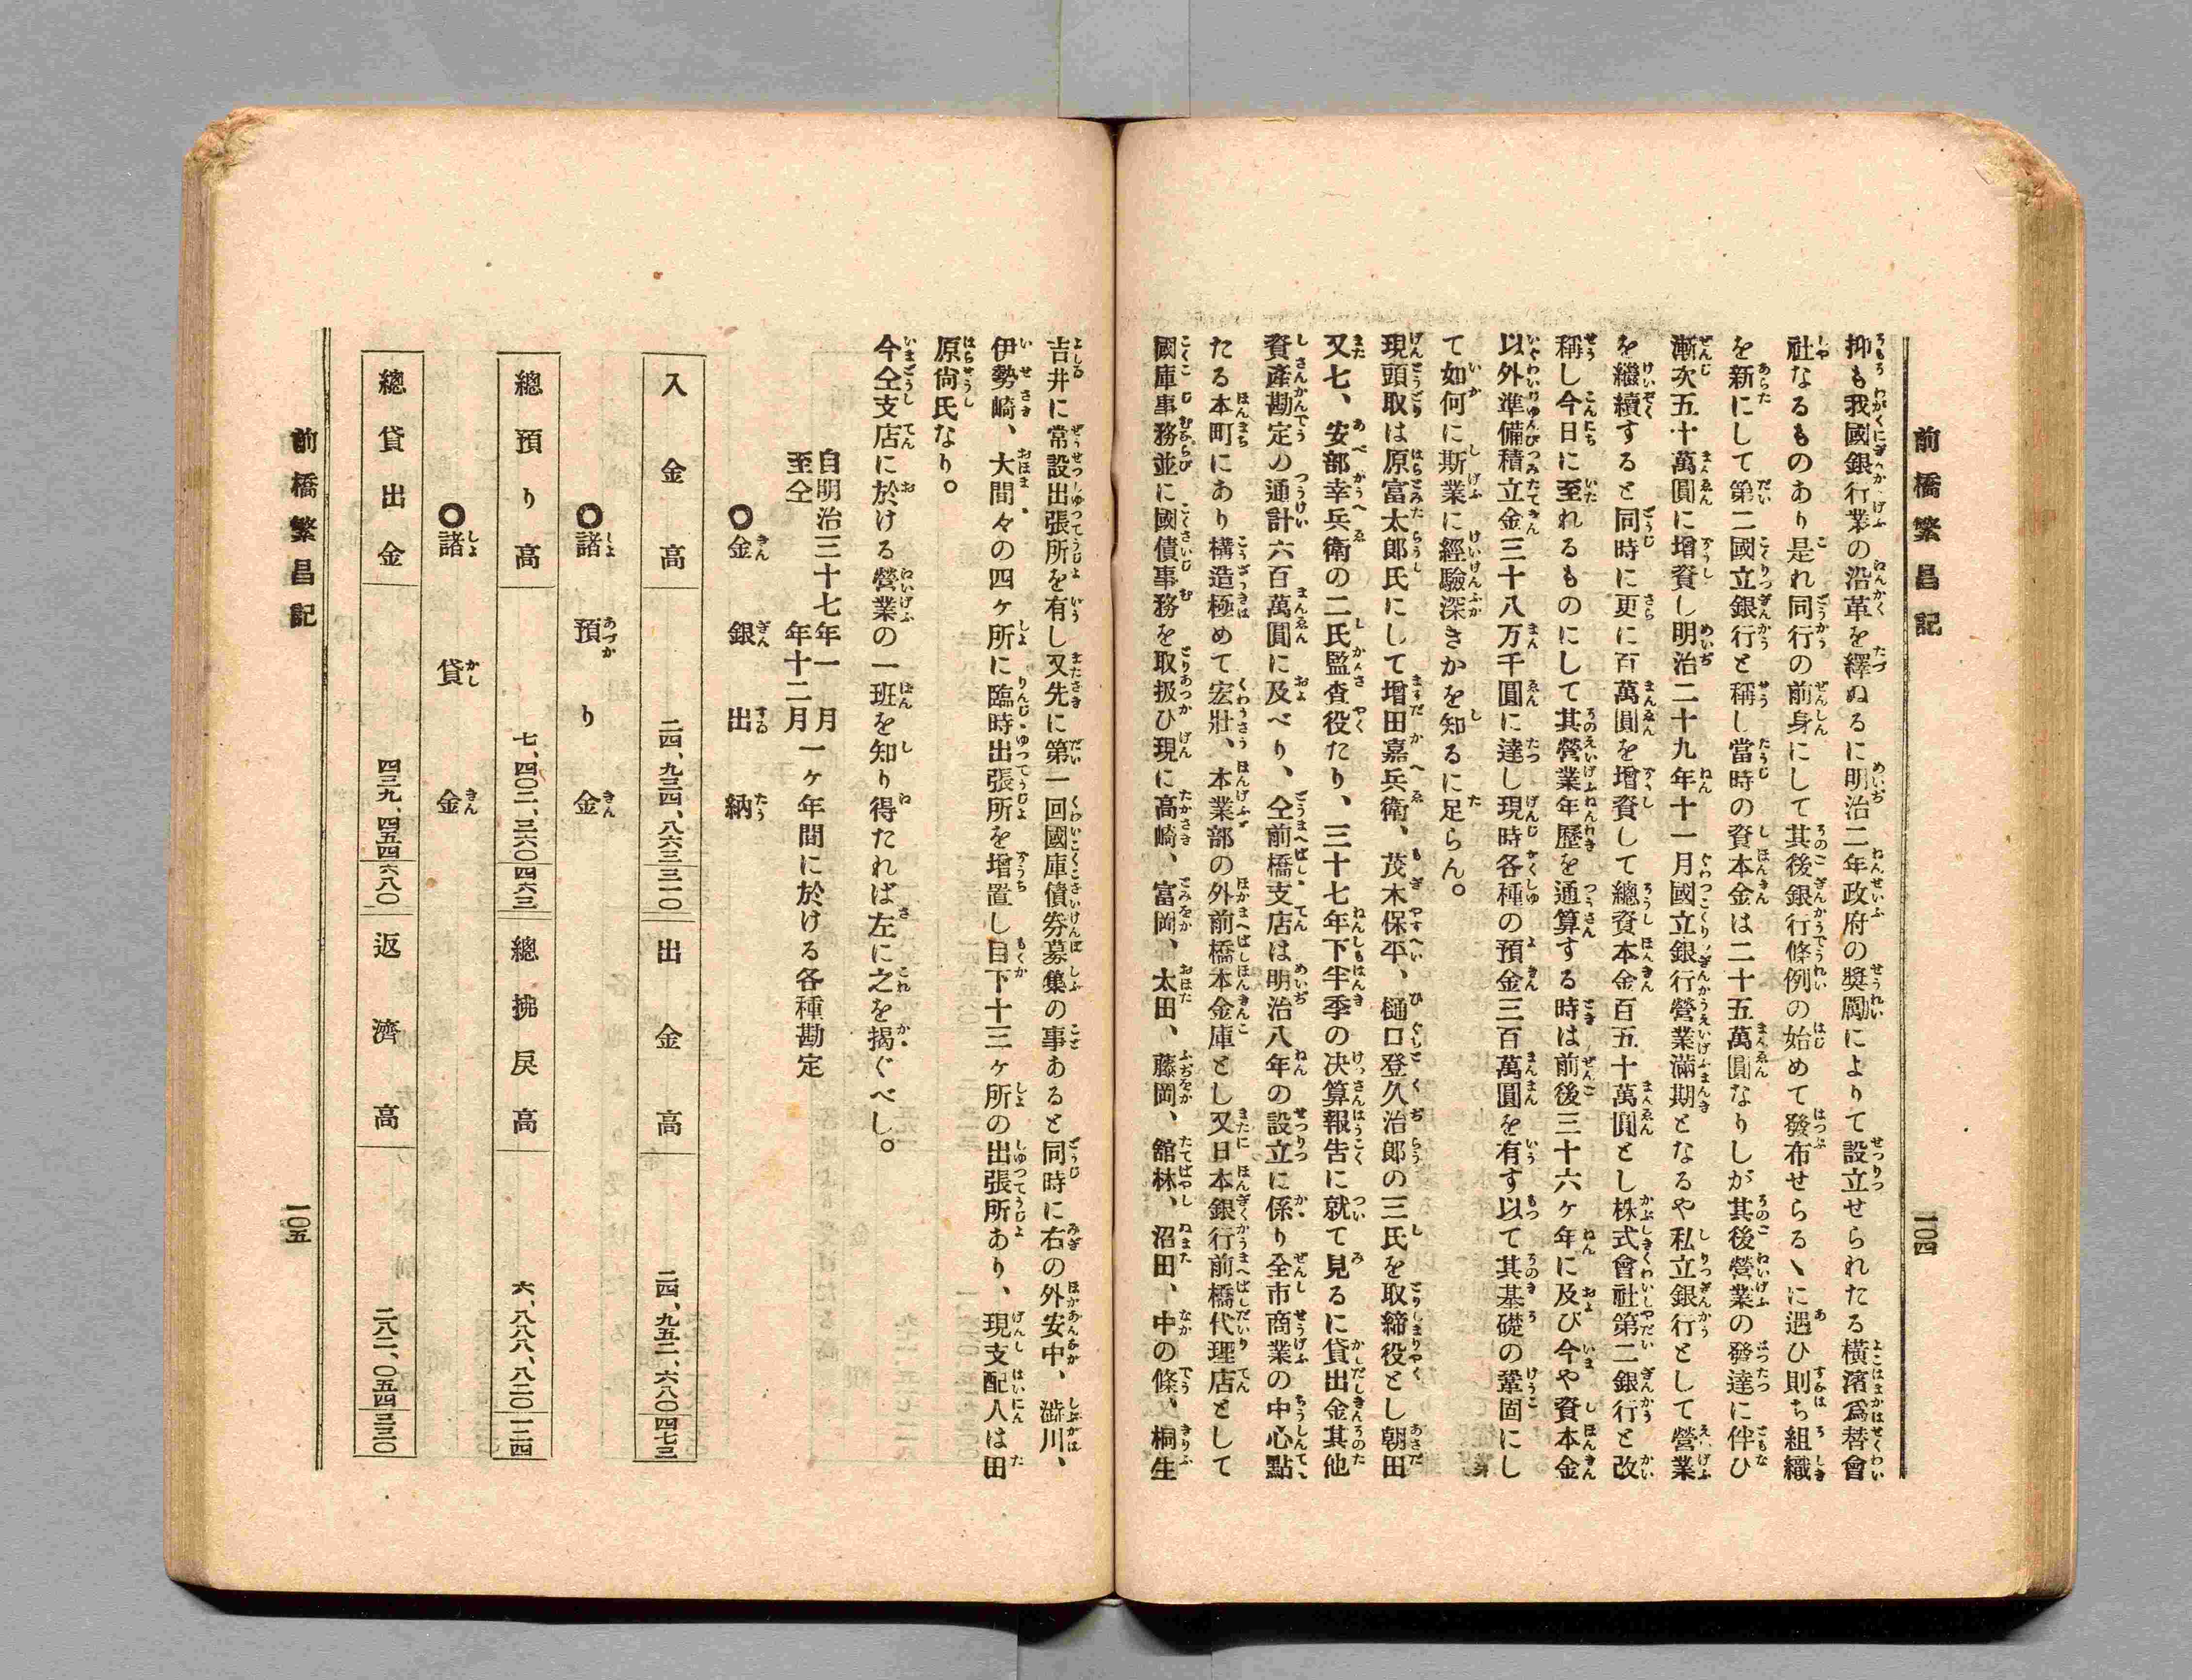 前橋繁昌記
一〇四
抑も我國銀行業の沿革を繹ぬるに明治二年政府の奬勵によりて設立せられたる横濱爲替會
社なるものあり是れ同行の前身にして其後銀行條例の始めて發布せらるゝに遇ひ則ち組織
を新にして第二國立銀行と稱し當時の資本金は二十五萬圓なりしが其後營業の發達に伴ひ
漸次五十萬圓に增資し明治二十九年十一月國立銀行營業滿期となるや私立銀行として營業
を繼續すると同時に更に百萬圓を增資して總資本金百五十萬圓とし株式會社第二銀行と改
稱し今日に至れるものにして其營業年歷を通算する時は前後三十六ヶ年に及び今や資本金
以外準備積立金三十八万千圓に達し現時各種の預金三百萬圓を有す以て其基礎の鞏固にし
て如何に斯業に經驗深きかを知るに足らん。
現頭取は原富太郎氏にして增田嘉兵衛、茂木保平、樋口登久治郎の三氏を取締役とし朝田
又七、安部幸兵衛の二氏監査役たり、三十七年下半季の决算報告に就て見るに貸出金其他
資產勘定の通計六百萬圓に及べり、仝前橋支店は明治八年の設立に係り全市商業の中心點
たる本町にあり構造極めて宏壯、本業部の外前橋本金庫とし又日本銀行前橋代理店として
國庫事務並に國債事務を取扱ひ現に高崎、富岡、太田、藤岡、舘林、沼田、中の條、桐生
吉井に常設出張所を有し又先に第一回國庫債券募集の事あると同時に右の外安中、澁川、
伊勢崎、大間々の四ヶ所に臨時出張所を增置し目下十三ヶ所の出張所あり、現支配人は田
原尙氏なり。
今仝支店に於ける營業の一班を知り得たれば左に之を揭ぐべし。
自明治三十七年一月
至仝年十二月
一ヶ年間に於ける各種勘定
○金銀出納
入金高 二四、九三四、八六三 三一〇 出金高 二四、九五二、六八〇 四七三
○諸預り金
總預り高 七、四〇二、三六〇 四六三 總拂戾高 六、八八八、八二〇 一二四
○諸貸金
總貸出金 四三九、四五四 六八〇 返濟高 二八二、〇五四 三三〇
前橋繁昌記
一〇五